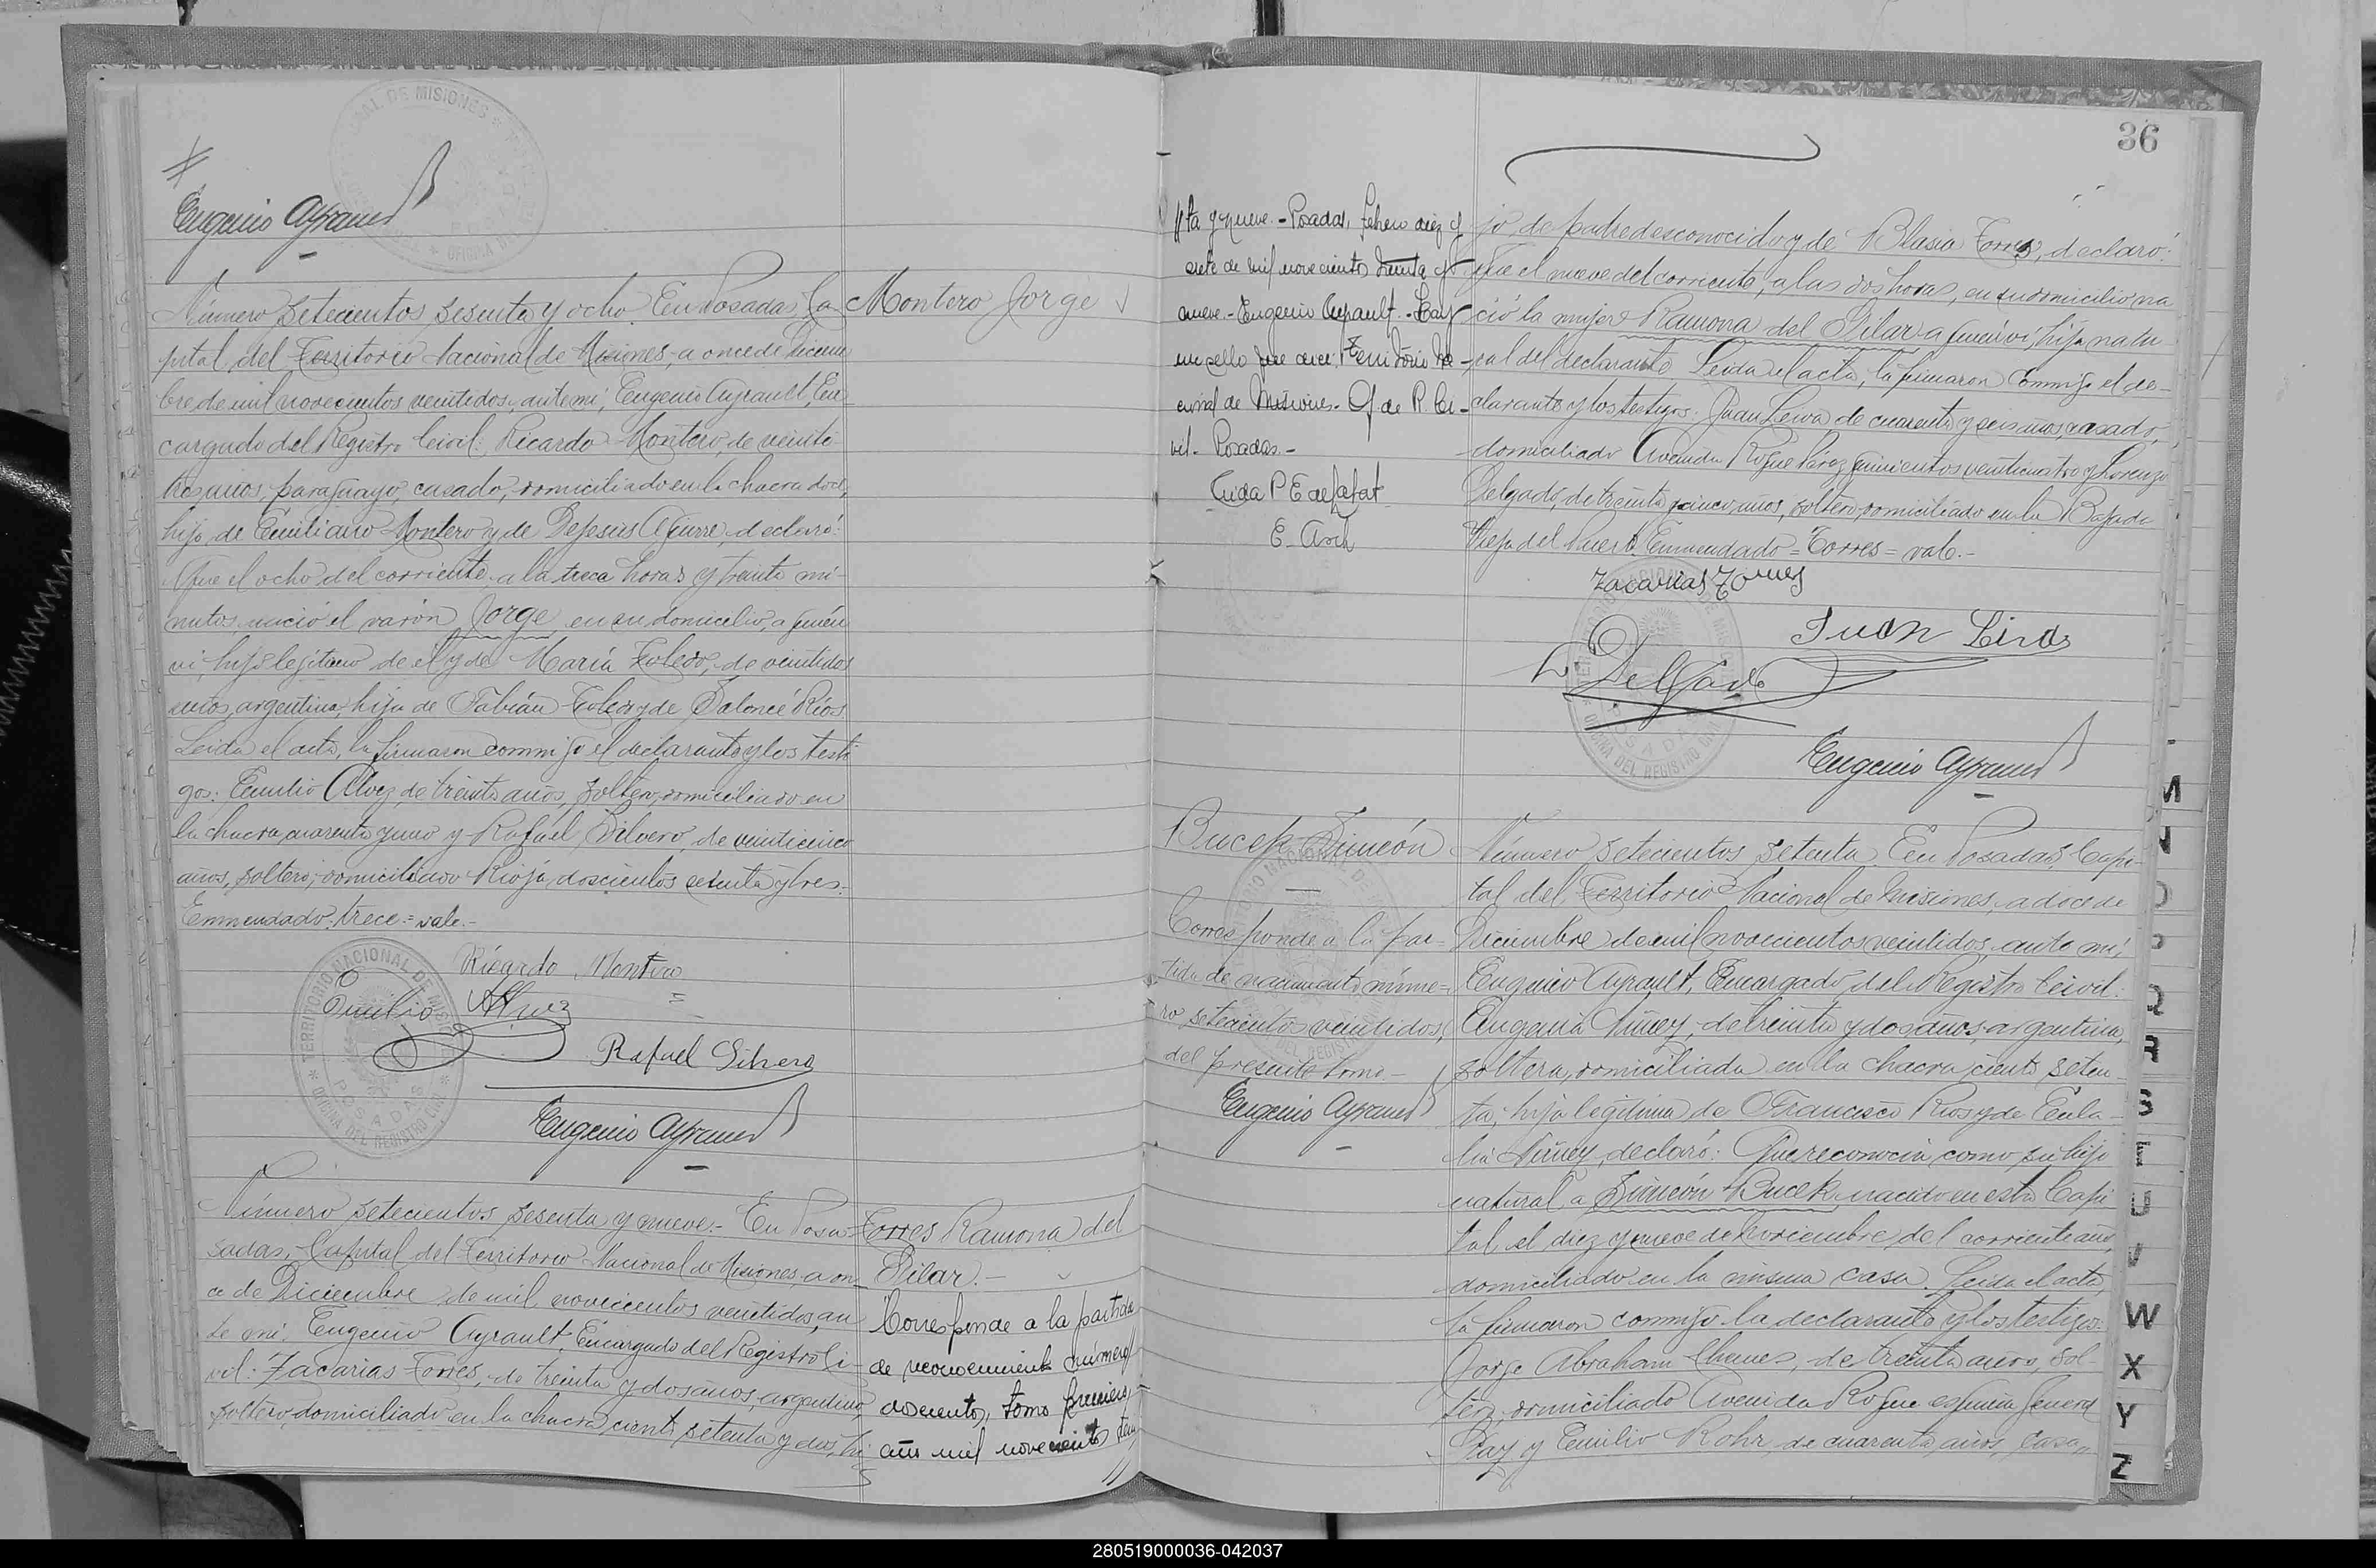 Eugenio Ayrault
Montero Jorge
Número setecientos sesenta y ocho. En Posadas, Ca
pital del Territorio Nacional de Misiones, a once de Diciem
bre de mil novecientos veintidos, ante mi, Eugenio Ayrault, En
cargado del Registro Civil: Ricardo Montero, de veinti
años, paraguayo, casado, domiciliado en la chacra doce,
hijo de Emiliano Montero y de Dejesús Aguirre, declaró:
Que el ocho del corriente, a la trece horas y treinta mi-
nutos, nació el varón Jorge, en su domicilio, a quién
vi, hijo lejitimo de el y de María Toledo, de veintidos
años, argentina, hija de Fabián Toledo y de Salomé Ríos
Leida el acta, la firmaron conmigo el declarante y los testi
gos: Emilio Alvez, de treinta años, soltero, domiciliado en
la chacra cuarenta y uno y Rafael Silvero, de veinticinco
años, soltero, domiciliado Rioja, doscientos setenta y tres.-
Enmendado: trece = vale.-
Ricardo Montero
Emilio Alvez
Rafael Silvero
TERRITORIO NACIONAL DE MISIONES
OFICINA DEL REGISTRO CIVIL
POSADAS
Eugenio Ayrault
Torres Ramona del
Pilar.-
Corresponde a la partida
de reconocimiento número
doscientos, tomo primero,
año mil novecientos trein
Número setecientos sesenta y nueve.- En Posa-
sadas, Capital del Territorio Nacional de Misiones, a on
ce de Diciembre de mil novecientos veintidos, an
te mi, Eugenio Ayrault, Encargado del Registro Ci-
vil: Zacarias Torres, de treinta y dos años, argentino,
soltero, domiciliado en la chacra ciento setenta y dos, hi-
36
//ta y nueve.- Posadas, Febrero diez y
siete de mil novecientos treinta y
nueve.- Eugenio Ayrault.- Hay
un sello que dice: Territorio Na-
cional de Misiones. Of de R. Ci-
vil. Posadas.-
E. Arch
jo, de padre desconocido y de Blasia Torres, declaró:
Que el nueve del corriente, a las dos horas, en su domicilio na
ció la mujer Ramona del Pilar a quien vi, hija natu
ral del declarante. Leida el acta, la firmaron conmigo el de-
clarante y los testigos: Juan Leiva, de cuarenta y seis años, casado,
domiciliado Avenida Roque Pérez quinientos veinticuatro y Lorenzo
Delgado, de treinta y cinco años, soltero, domiciliado en la Bajada
Vieja del Puerto. Enmendado = Torres = vale.-
Zacarias Torres
Juan Leiva
L. Delgado
Eugenio Ayrault
Bucek Simeón
Corresponde a la par-
tida de nacimiento núme-
ro setecientos veintidos,
del presente tomo.-
Eugenio Ayrault
Número setecientos setenta. En Posadas, Capi-
tal del Territorio Nacional de Misiones, a doce de
Diciembre de mil novecientos veintidos, ante mi,
Eugenio Ayrault, Encargado del Registro Civil:
Eugenia Núñez, de treinta y dos años, argentina,
soltera, domiciliada en la chacra ciento seten-
ta, hija legitima de Francisco Rios y de Eula-
lia Núñez, declaró: Que reconocia como su hijo
natural a Simeón Bucek, nacido en esta Capi
tal, el diez y nueve de Noviembre del corriente año,
domiciliado en la misma casa. Leida el acta,
la firmaron conmigo la declarante y los testigos:
Jorge Abraham Chemes, de treinta años, sol-
tero, domiciliado Avenida Roque esquina General
Paz y Emilio Rohr, de cuarenta años, casa
M
N
O
P
Q
R
S
T
U
V
W
X
Y
Z
280519000036-042037